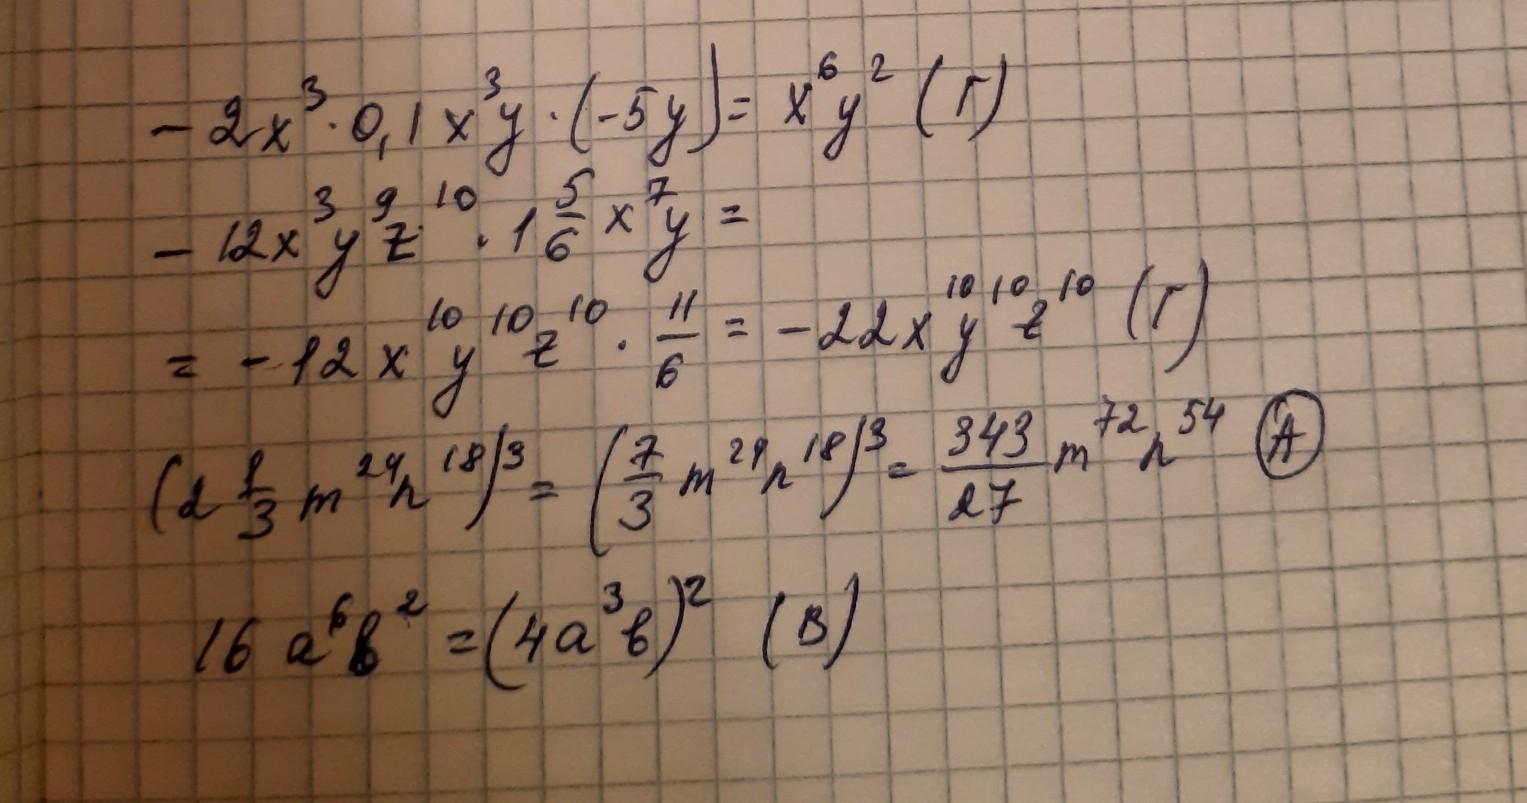 -2x³·0,1x³y·(-5y)=x⁶y² (Г)
-12x³y⁹z¹⁰·1 5/6 x⁷y=
=-12x¹⁰y¹⁰z¹⁰·11/6=-22x¹⁰y¹⁰z¹⁰ (Г)
(2 1/3 m²⁴n¹⁸)³=(7/3 m²⁴n¹⁸)³=343/27 m⁷²n⁵⁴ А
16a⁶b²=(4a³b)² (В)